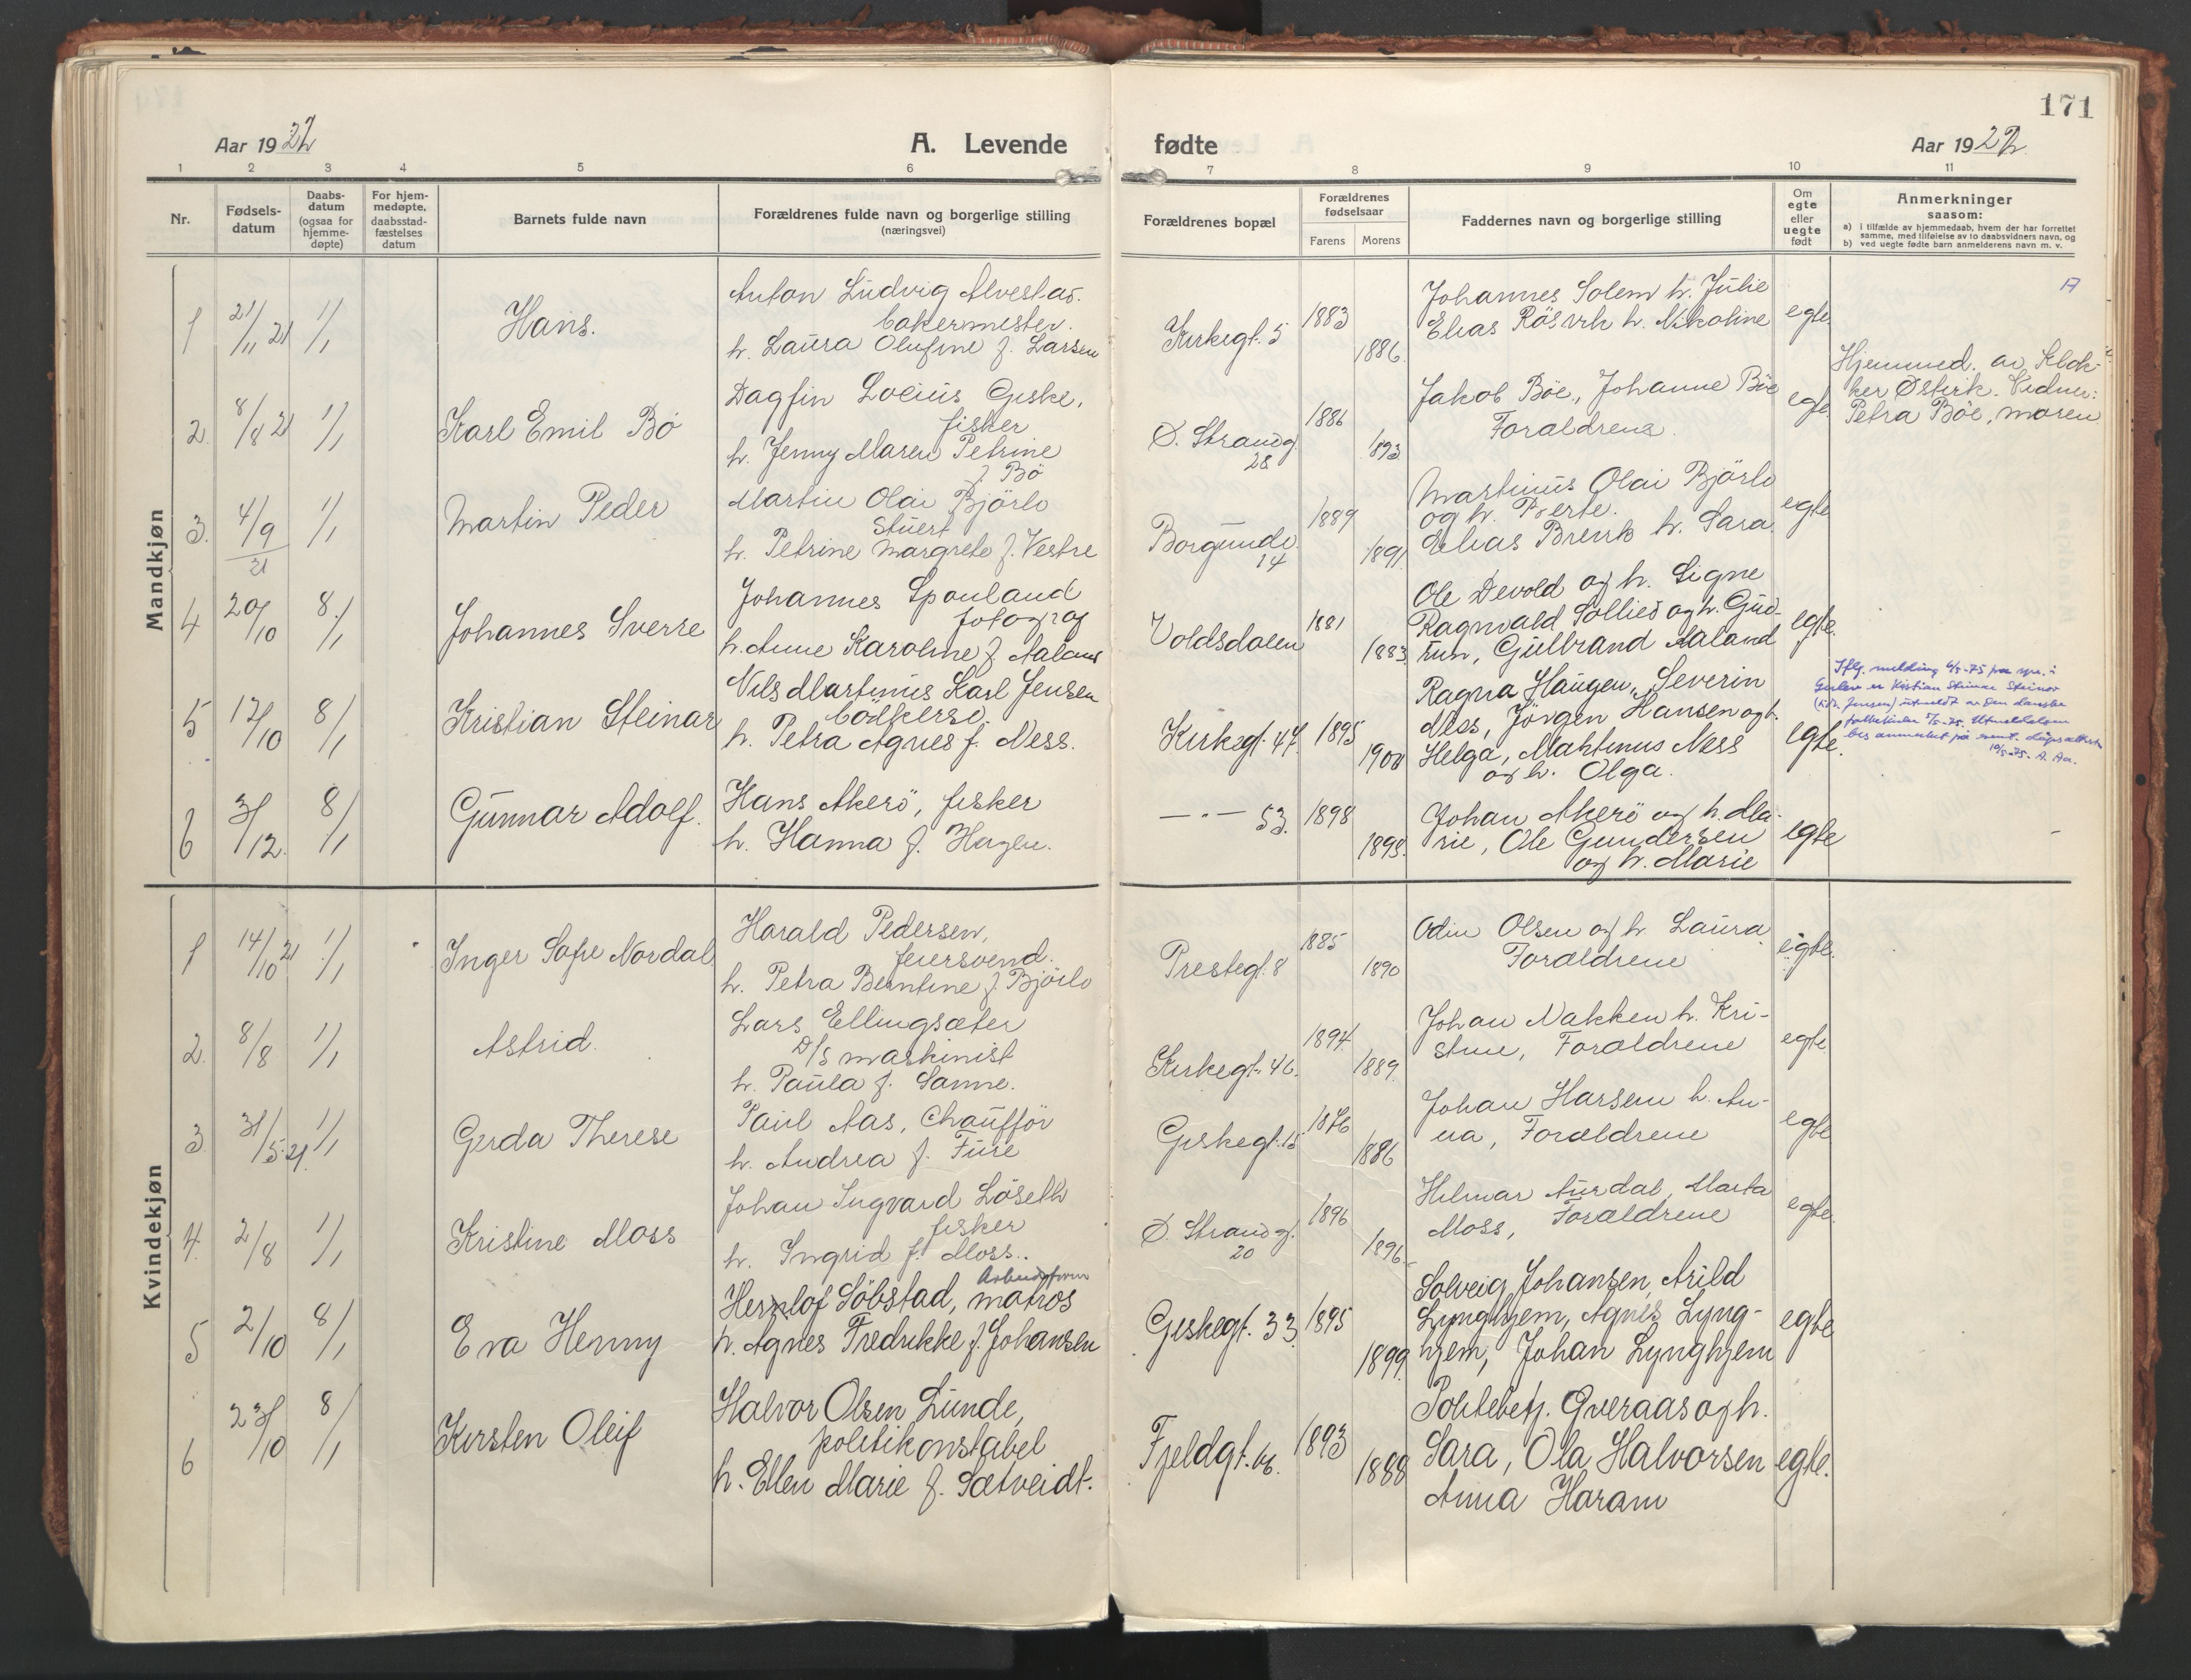 171
Aar 1922
A. Levende
fødte
Aar 1922
1 2 3 4 5 6 7 8 9 10 11
Nr.
Fødsels-
datum
Daabs-
datum
(ogsaa for
hjemme-
døpte)
For hjem-
medøpte,
daabsstad-
fæstelses
datum
Barnets fulde navn
Forældrenes fulde navn og borgerlige stilling
(næringsvei)
Forældrenes bopæl
Forældrenes
fødselsaar
Farens Morens
Faddernes navn og borgerlige stilling
Om
egte
eller
uegte
født
Anmerkninger
saasom:
a) i tilfælde av hjemmedaab, hvem der har forrettet
samme, med tilføielse av to daabsvidners navn, og
b) ved uegte fødte barn anmelderens navn m. v.
Mandkjøn
1
21/11 21
1/1
Hans.
Anton Ludvig Alvestad.
bakermester.
h. Laura Olufine f. Larsen
Kirkegt. 5
1883
1886.
Johannes Solem h. Julie
Elias Røsvik h. Nikoline
egte
2.
8/8 21
1/1
Karl Emil Bö
Dagfin Locius Giske,
fisker
h. Jenny Maren Petrine
f. Bö
Ø. Strandg.
28
1886
1893
Jakob Böe, Johanne Böe
Forældrene.
egte
Hjemmed. av Klok-
ker Østrik. Vidner:
Petra Böe, Maren
3.
4/9
21
1/1
Martin Peder
Martin Olai Björlo
Stuert
h. Petrine Margrete f. Vestre
Borgundv.
14
1889
1891
Martinus Olai Björlo
og h. Berte.
Elias Brevik h. Sara
egte
4
20/10
8/1
Johannes Sverre
Johannes Sponland
fotograf
h. Anne Karoline f. Aaland
Voldsdalen
1881
1883
Ole Devold og h. Signe
Ragnvald Sollied og h. Gud-
run, Gulbrand Aaland
egte.
5
12/10
8/1
Kristian Steinar
Nils Martinus Karl Jensen
bödkersv.
h. Petra Agnes f. Ness.
Kirkegt. 47.
1895
1900
Ragna Haugen, Severin
Ness, Jörgen Hansen og h.
Helga, Mahtinus Ness
og h. Olga.
egte.
Iflg. melding 6/5-75 fra spr. i
6
31/12.
8/1
Gunnar Adolf.
Hans Akerö, fisker
h. Hanna f. Hagen.
— " — 53.
1898
1895.
Johan Akerö og h. Ma-
rie, Ole Gundersen
og h. Marie
egte
Kvindekjøn
1
14/10 21
1/1
Inger Sofie Nordal
Harald Pedersen,
feiersvend.
h. Petra Berntine f. Björlo
Prestegt. 8
1885
1890
Odin Olsen og h Laura
Forældrene
egte.
2.
8/8
1/1
Astrid.
Lars Ellingsæter
D/S maskinist
h. Paula f. Sanne.
Kirkegt. 46.
1894
1889.
Johan Nakken h. Kri-
stine, Forældrene
egte
3
31/5.21.
1/1
Gerda Therese
Paul Aas, Chauffør
h. Andrea f. Fure
Giskegt. 15
1876
1886
Johan Harsem h. An-
na, Forældrene
egte
4.
2/8
1/1
Kristine Moss
Johan Ingvard Löseth
fisker
h. Ingrid f. Moss..
Ø. Strandg.
20
1896
1896
Hilmar Aurdal, Marta
Moss, Forældrene
egte.
5
2/10
8/1
Eva Henny
Herlof Söbstad, matros
h. Agnes Fredrikke f. Johansen
Giskegt. 33.
1895
1899
Solveig Johansen, Arild
Lynghjem, Agnes Lyng-
hjem, Johan Lynghjem
egte
6
23/10
8/1
Kirsten Oleif
Halvor Olsen Lunde,
politikonstabel
h. Ellen Marie f. Sætveidt.
Fjeldgt. 46.
1893
1888
Politibetj. Gveraas og h.
Sara, Ola Halvorsen
Anna Haram
egte.